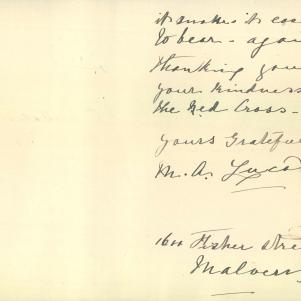 it makes it eas
to bear - again
thanking you
your kindness
the Red Cross -
yours Grateful
M. A. Lucas
1611 Fisher Stre
Malvern